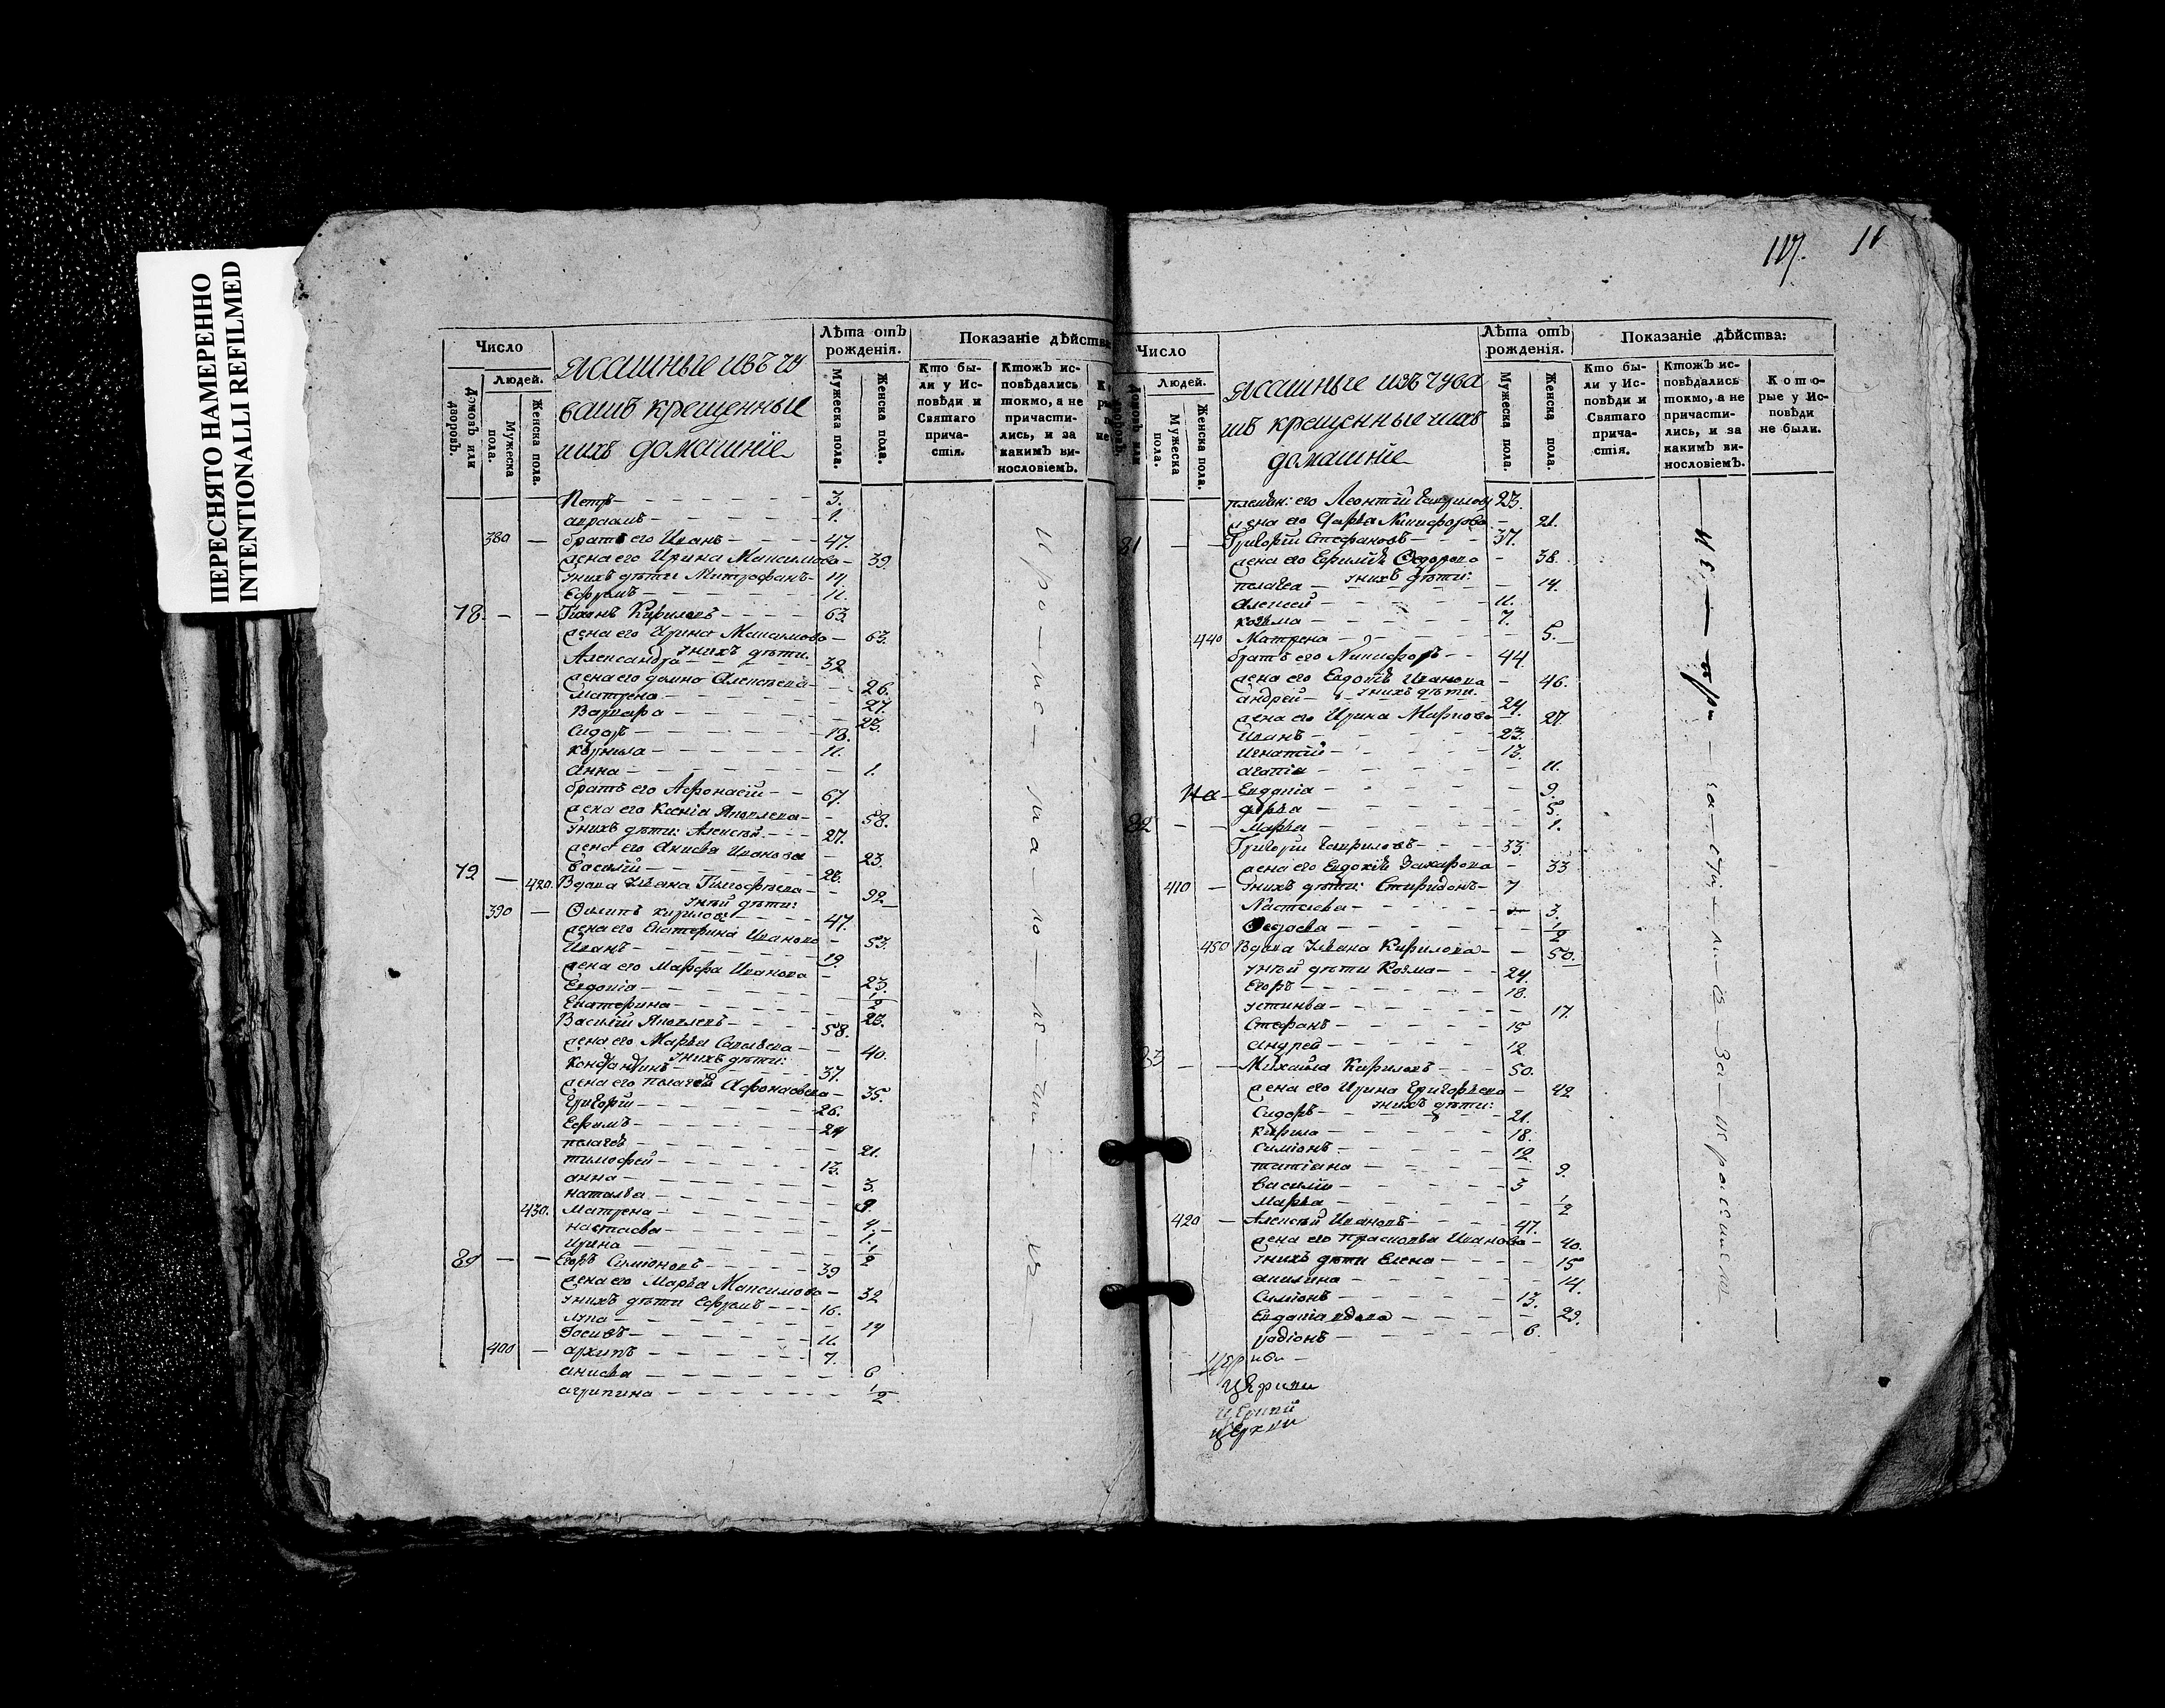 ПЕРЕСНЯТО НАМЕРЕННО
INTENTIONALLI REFILMED
Число
Людей.
Домовъ или дворовъ.
Мужеска пола.
Женска пола.
Ясашные изъ чу
вашъ крещенные
ихъ домашніе
Лѣта отъ рожденія.
Мужеска пола.
Женска пола.
Показаніе дѣйства
Кто бы-
ли у Ис-
повѣди и
Святаго
прича-
стія.
Ктожъ ис-
повѣдались
токмо, а не
причасти-
лись, и за
какимъ ви-
нословіемъ.
Петръ 3.
авраамъ 1.
380 братъ его Иванъ 47.
жена его Ирина Максимова 39.
унихъ дѣти Митрофанъ
Ефремъ 11.
78. Кириловъ 63
жена его Ирина Максимова 63.
унихъ дѣти.
Александръ 32
жена его Алексѣева 26.
матрена 27.
Варвара 23.
Сидоръ 18.
корнила 11.
анна 1.
братъ его Афонасій 67.
жена его Ксенія Яковлева 58.
унихъ дѣти: Алексѣй 27.
жена его Анисья Иванова 23
Василій
79 420. Вдова 92
уней дѣти:
390 Филипъ кириловъ 47.
жена его Екатерина Иванова 53.
Иванъ 19.
жена его Марфа Иванова 23.
Евдокія 1/2
Екатерина 23.
Василій Яковлевъ 58.
жена его Марья Савельева 40.
унихъ дѣти:
37.
жена его пелагея Афонасьева 35.
Григорій 26.
Ефремъ 24
пелагея 21.
тимофей 13.
анна 3.
наталья 9.
430. Матрена 4.
настасья 1.
Ирина 1/2
Егоръ Симіоновъ 39
жена его Марья Максимова 32
унихъ дѣти Ефремъ 16.
14
Іосифъ 11.
400 архипъ 7.
анисья 6
агрипина 1/2
117.
Число
Людей.
Мужеска пола.
Женска пола.
Ясашные изъ чува
шъ крещенные ихъ
домашніе
Лѣта отъ рожденія.
Мужеска пола.
Женска пола.
Показаніе дѣйства:
Кто бы-
ли у Ис-
повѣди и
Святаго
прича-
стія.
Ктожъ ис-
повѣдались
токмо, а не
причасти-
лись, и за
какимъ ви-
нословіемъ.
Кото-
рые у Ис-
повѣди
не были.
племян: его Леонтій Гавриловъ 23.
жена его Дарья Никифорова 21.
81 Григорій Стефановъ 37.
жена его Ефимія Федорова 38.
унихъ дѣти:
пелагея 14.
Алексей 11.
козма 7.
440 Матрена 5.
братъ его Никифоръ 44.
жена его Евдокія Иванова 46.
унихъ дѣти.
андрей 24.
жена его Ирина Маркова 27
Иванъ 23.
Игнатій 13.
агапія 11.
Евдокія 9.
дарья 5.
82 Марья 1.
Григорій Гавриловъ 33.
жена его Евдокія Захарова 33
410 унихъ дѣти: Спиридонъ 7
Настасья 3.
Федосья 1/2
450 Вдова Кирилова 50.
уней дѣти Козма 24.
Егоръ 18.
устинья 17.
Стефанъ 15
андрей 12
83 Михайла Кириловъ 50.
жена его Ирина Григорьева 42
унихъ дѣти:
Сидоръ 21.
кирило 18.
Симіонъ 12
татіана 9.
Василій 3
Марья 1/2
420 Алексѣй Ивановъ 47.
жена его прасковья Иванова 40.
унихъ дѣти Елена 15
акилина 14.
Симіонъ 13.
Евдокія вдова 29.
радіонъ 6.